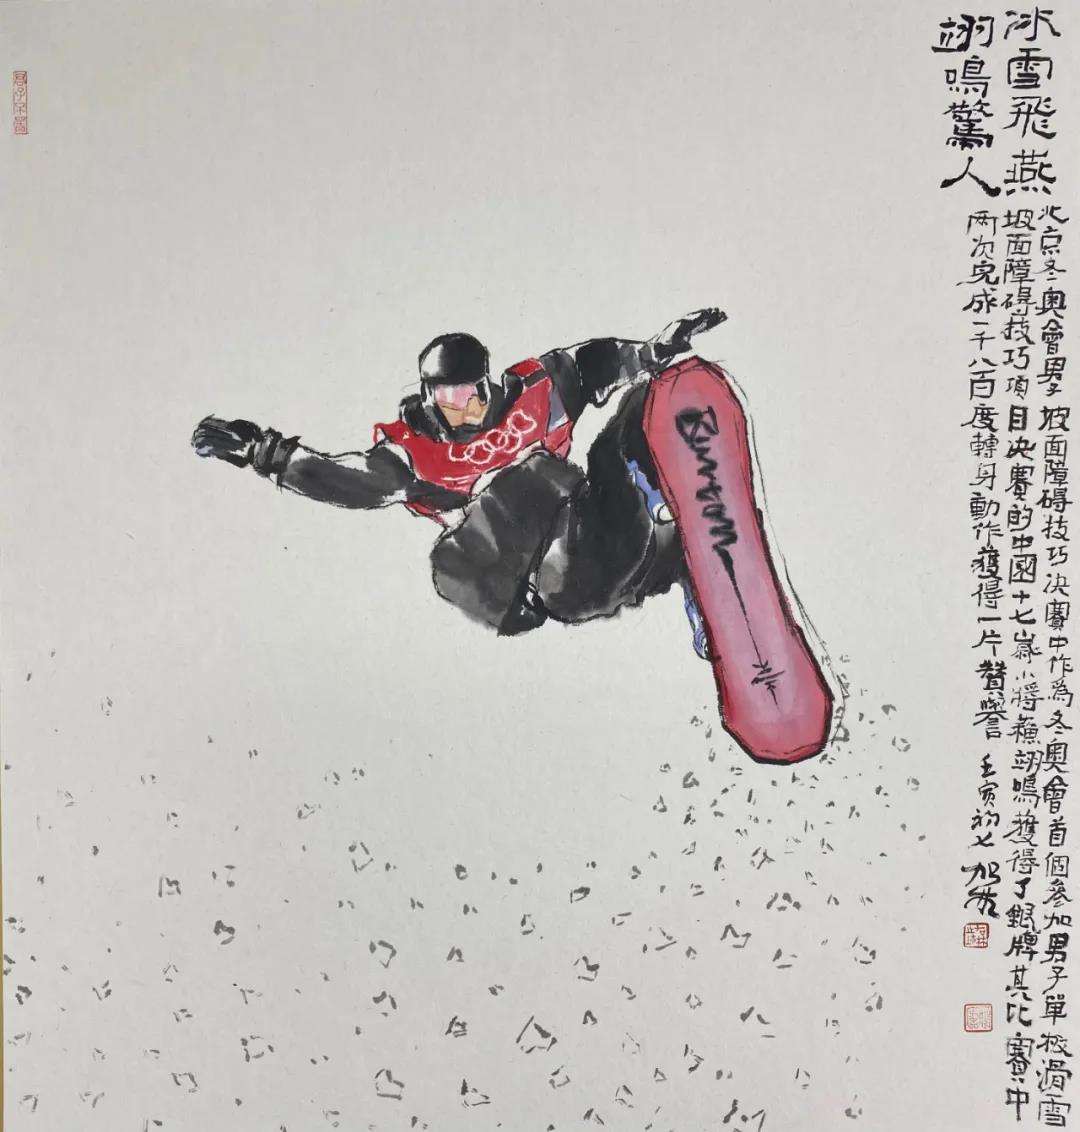 冰雪飛燕
翊鳴驚人
北京冬奧會男子坡面障碍技巧决賽中作為冬奧會首個參加男子單板滑雪
坡面障碍技巧項目决賽的中國十七歲小將蘇翊鳴獲得了銀牌其比賽中
两次完成一千八百度轉身動作獲得一片贊譽 壬寅初七
Burton